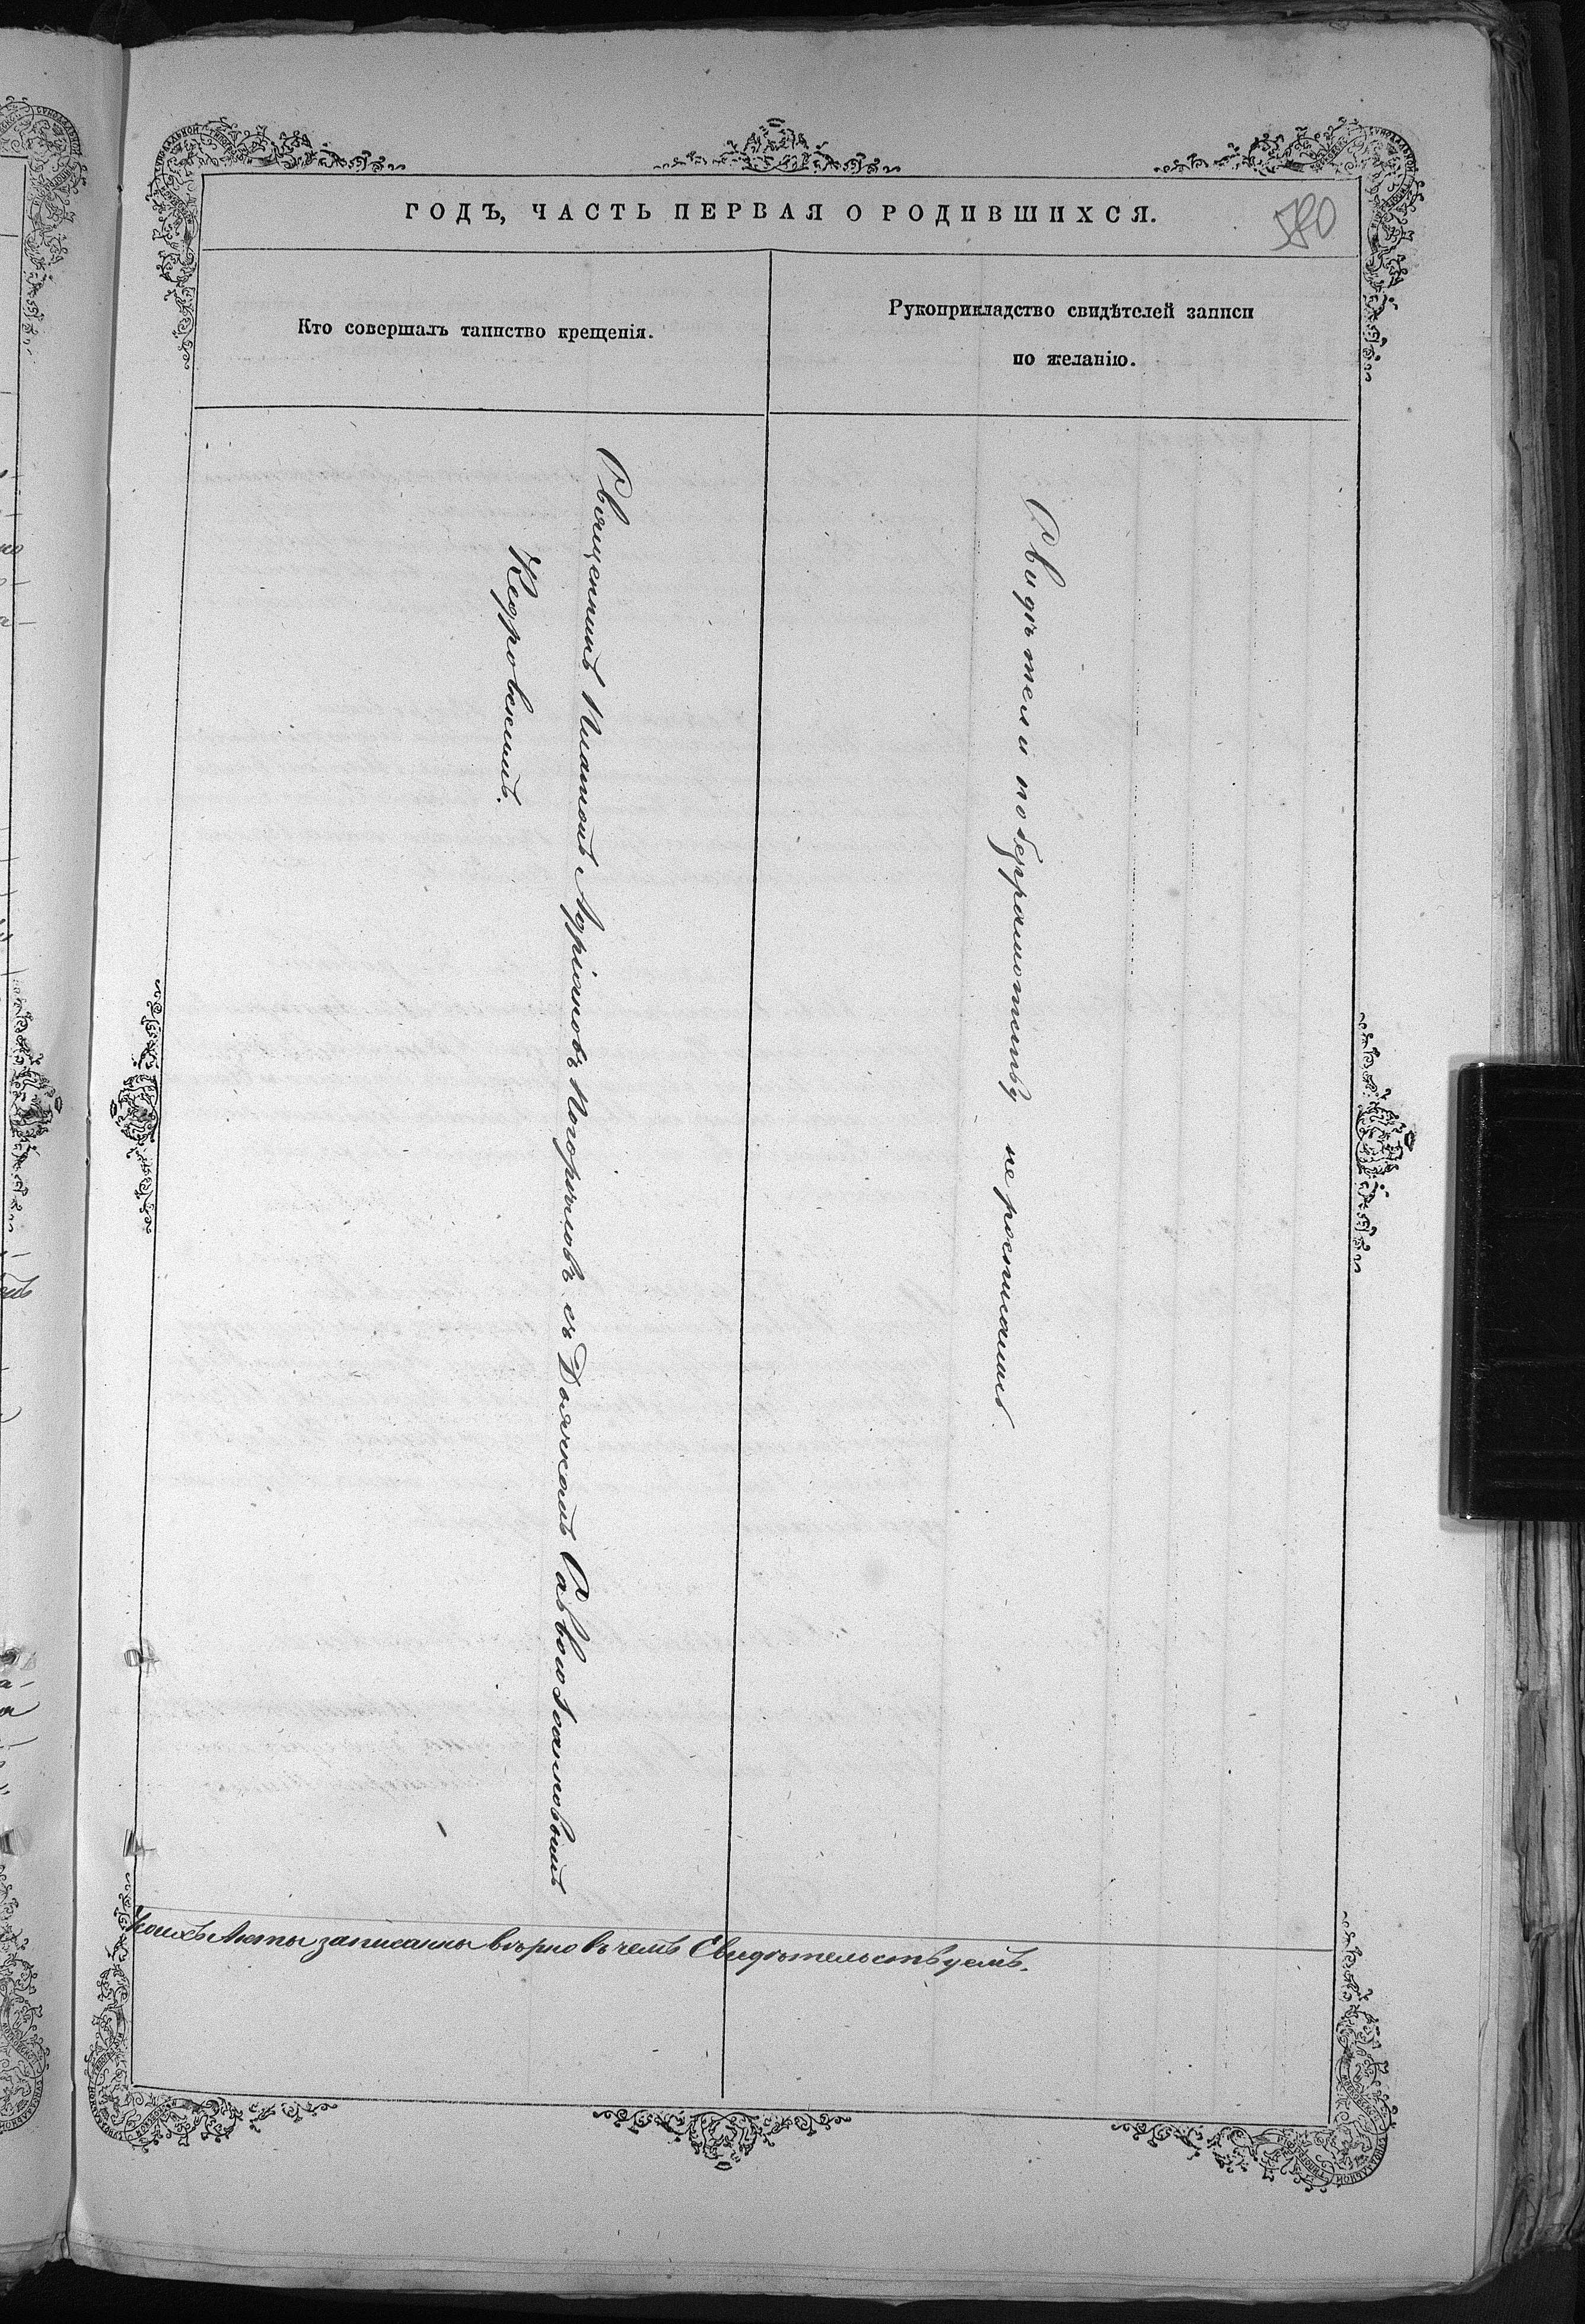 ГОДЪ, ЧАСТЬ ПЕРВАЯ О РОДИВШИХСЯ.
580
Кто совершалъ таинство крещенія.
Рукоприкладство свидѣтелей записи
по желанію.
Священникъ Платонъ Адріановъ Погорѣловъ съ Дьячкомъ Саввою Іоанновымъ
Кедровскимъ.
Свидѣтели по безграмотству не росписались
коихъ Акты записаны вѣрно въ чемъ Свидѣтельствуемъ.